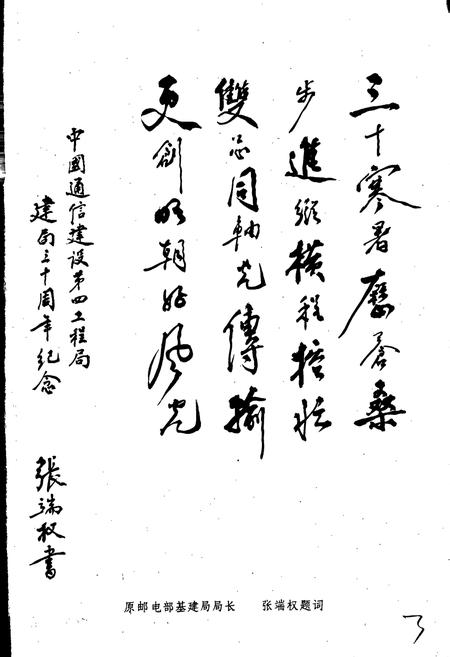 三十寒暑歷蒼桑
步進縱橫程控忙
雙芯同軸光傳輸
更創明朝好風光
中國通信建设第四工程局
建局三十周年纪念
張端权書
原邮电部基建局局长 张端权题词
3